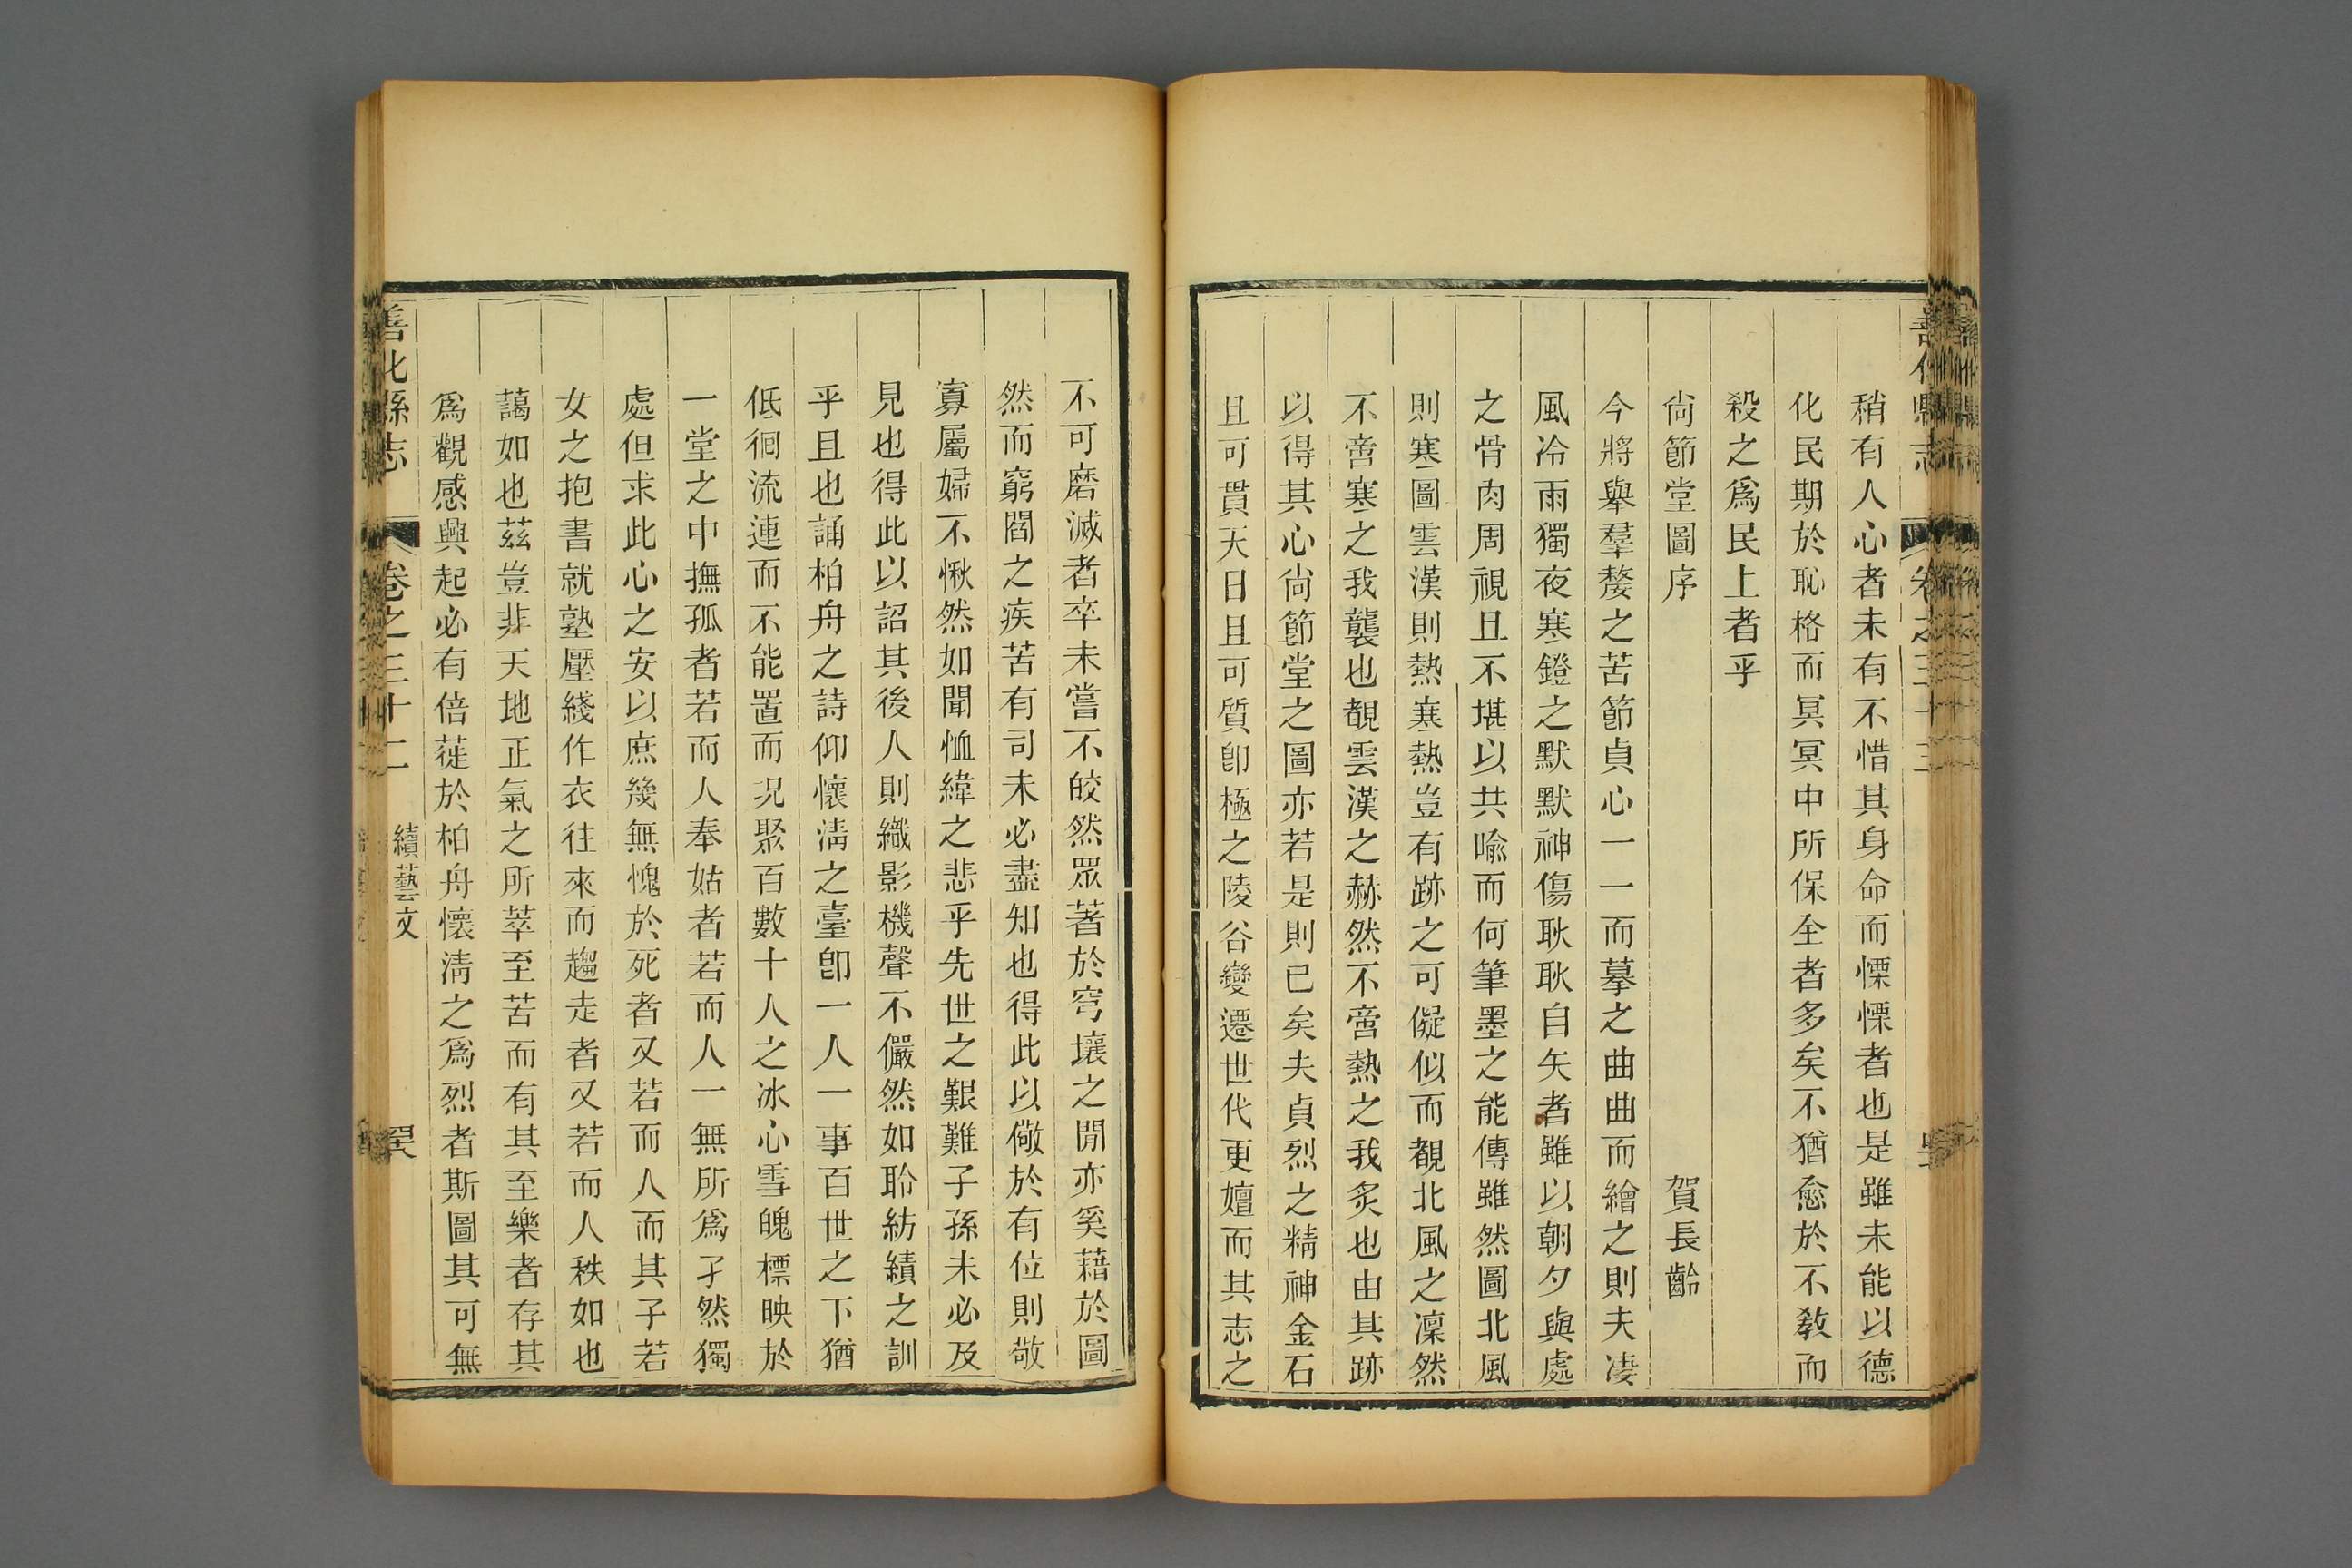 稍有人心者未有不惜其身命而慄慄者也是雖未能以德
化民期於恥格而冥冥中所保全者多矣不猶愈於不教而
殺之爲民上者乎
尙節堂圖序
賀長齡
今將舉羣嫠之苦節貞心一一而摹之曲曲而繪之則夫淒
風冷雨獨夜寒鐙之默默神傷耿耿自矢者雖以朝夕與處
之骨肉周視且不堪以共喩而何筆墨之能傳雖然圖北風
則寒圖雲漢則熱寒熱豈有跡之可儗似而覩北風之凜然
不啻寒之我襲也覩雲漢之赫然不啻熱之我炙也由其跡
以得其心尙節堂之圖亦若是則已矣夫貞烈之精神金石
且可貫天日且可質卽極之陵谷變遷世代更嬗而其志之
不可磨滅者卒未嘗不皎然眾著於穹壤之閒亦奚藉於圖
然而窮閻之疾苦有司未必盡知也得此以儆於有位則敬
寡屬婦不愀然如聞恤緯之悲乎先世之艱難子孫未必及
見也得此以詔其後人則織影機聲不儼然如聆紡績之訓
乎且也誦柏舟之詩仰懷淸之臺卽一人一事百世之下猶
低徊流連而不能置而况聚百數十人之冰心雪魄標映於
一堂之中撫孤者若而人奉姑者若而人一無所爲孑然獨
處但求此心之安以庶幾無愧於死者又若而人而其子若
女之抱書就塾壓綫作衣往來而趨走者又若而人秩如也
藹如也茲豈非天地正氣之所萃至苦而有其至樂者存其
爲觀感興起必有倍蓰於柏舟懷淸之爲烈者斯圖其可無
善化縣志
卷之三十二
續藝文